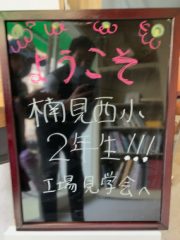 ようこそ
楠見西小
2年生!!!
工場見学会へ